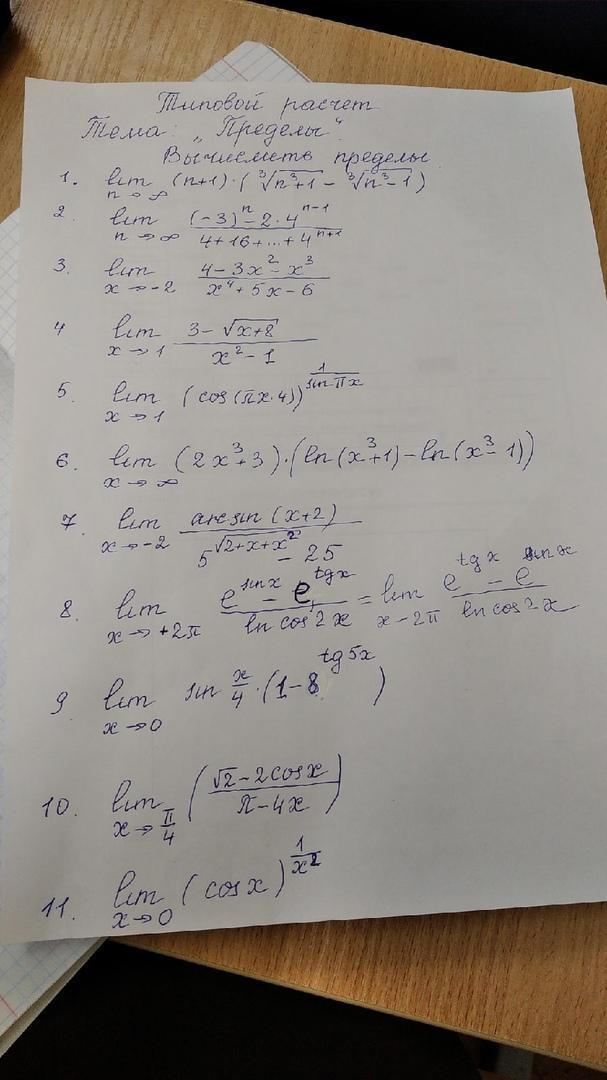 Типовой расчет
Тема: „Пределы"
Вычислить пределы
1. lim n→∞ (n+1)·(∛(n³+1) - ∛(n³-1))
2. lim n→∞ ((-3)ⁿ - 2·4ⁿ⁻¹)/(4+16+...+4ⁿ⁺¹)
3. lim x→-2 (4-3x²-x³)/(x⁴+5x-6)
4 lim x→1 (3-√(x+8))/(x²-1)
5. lim x→1 (cos(πx·4))^(1/sin πx)
6. lim x→∞ (2x³+3)·(ln(x³+1)-ln(x³-1))
7. lim x→-2 arcsin(x+2)/(5^√(2+x+x²) - 25)
8. lim x→+2π (e^(sin x) - e^(tg x))/(ln cos 2x) = lim x→2π (e^(tg x) - e^(sin x))/(ln cos 2x)
9. lim x→0 sin x/4·(1-8^(tg 5x))
10. lim x→π/4 ((√2-2cosx)/(π-4x))
11. lim x→0 (cosx)^(1/x²)